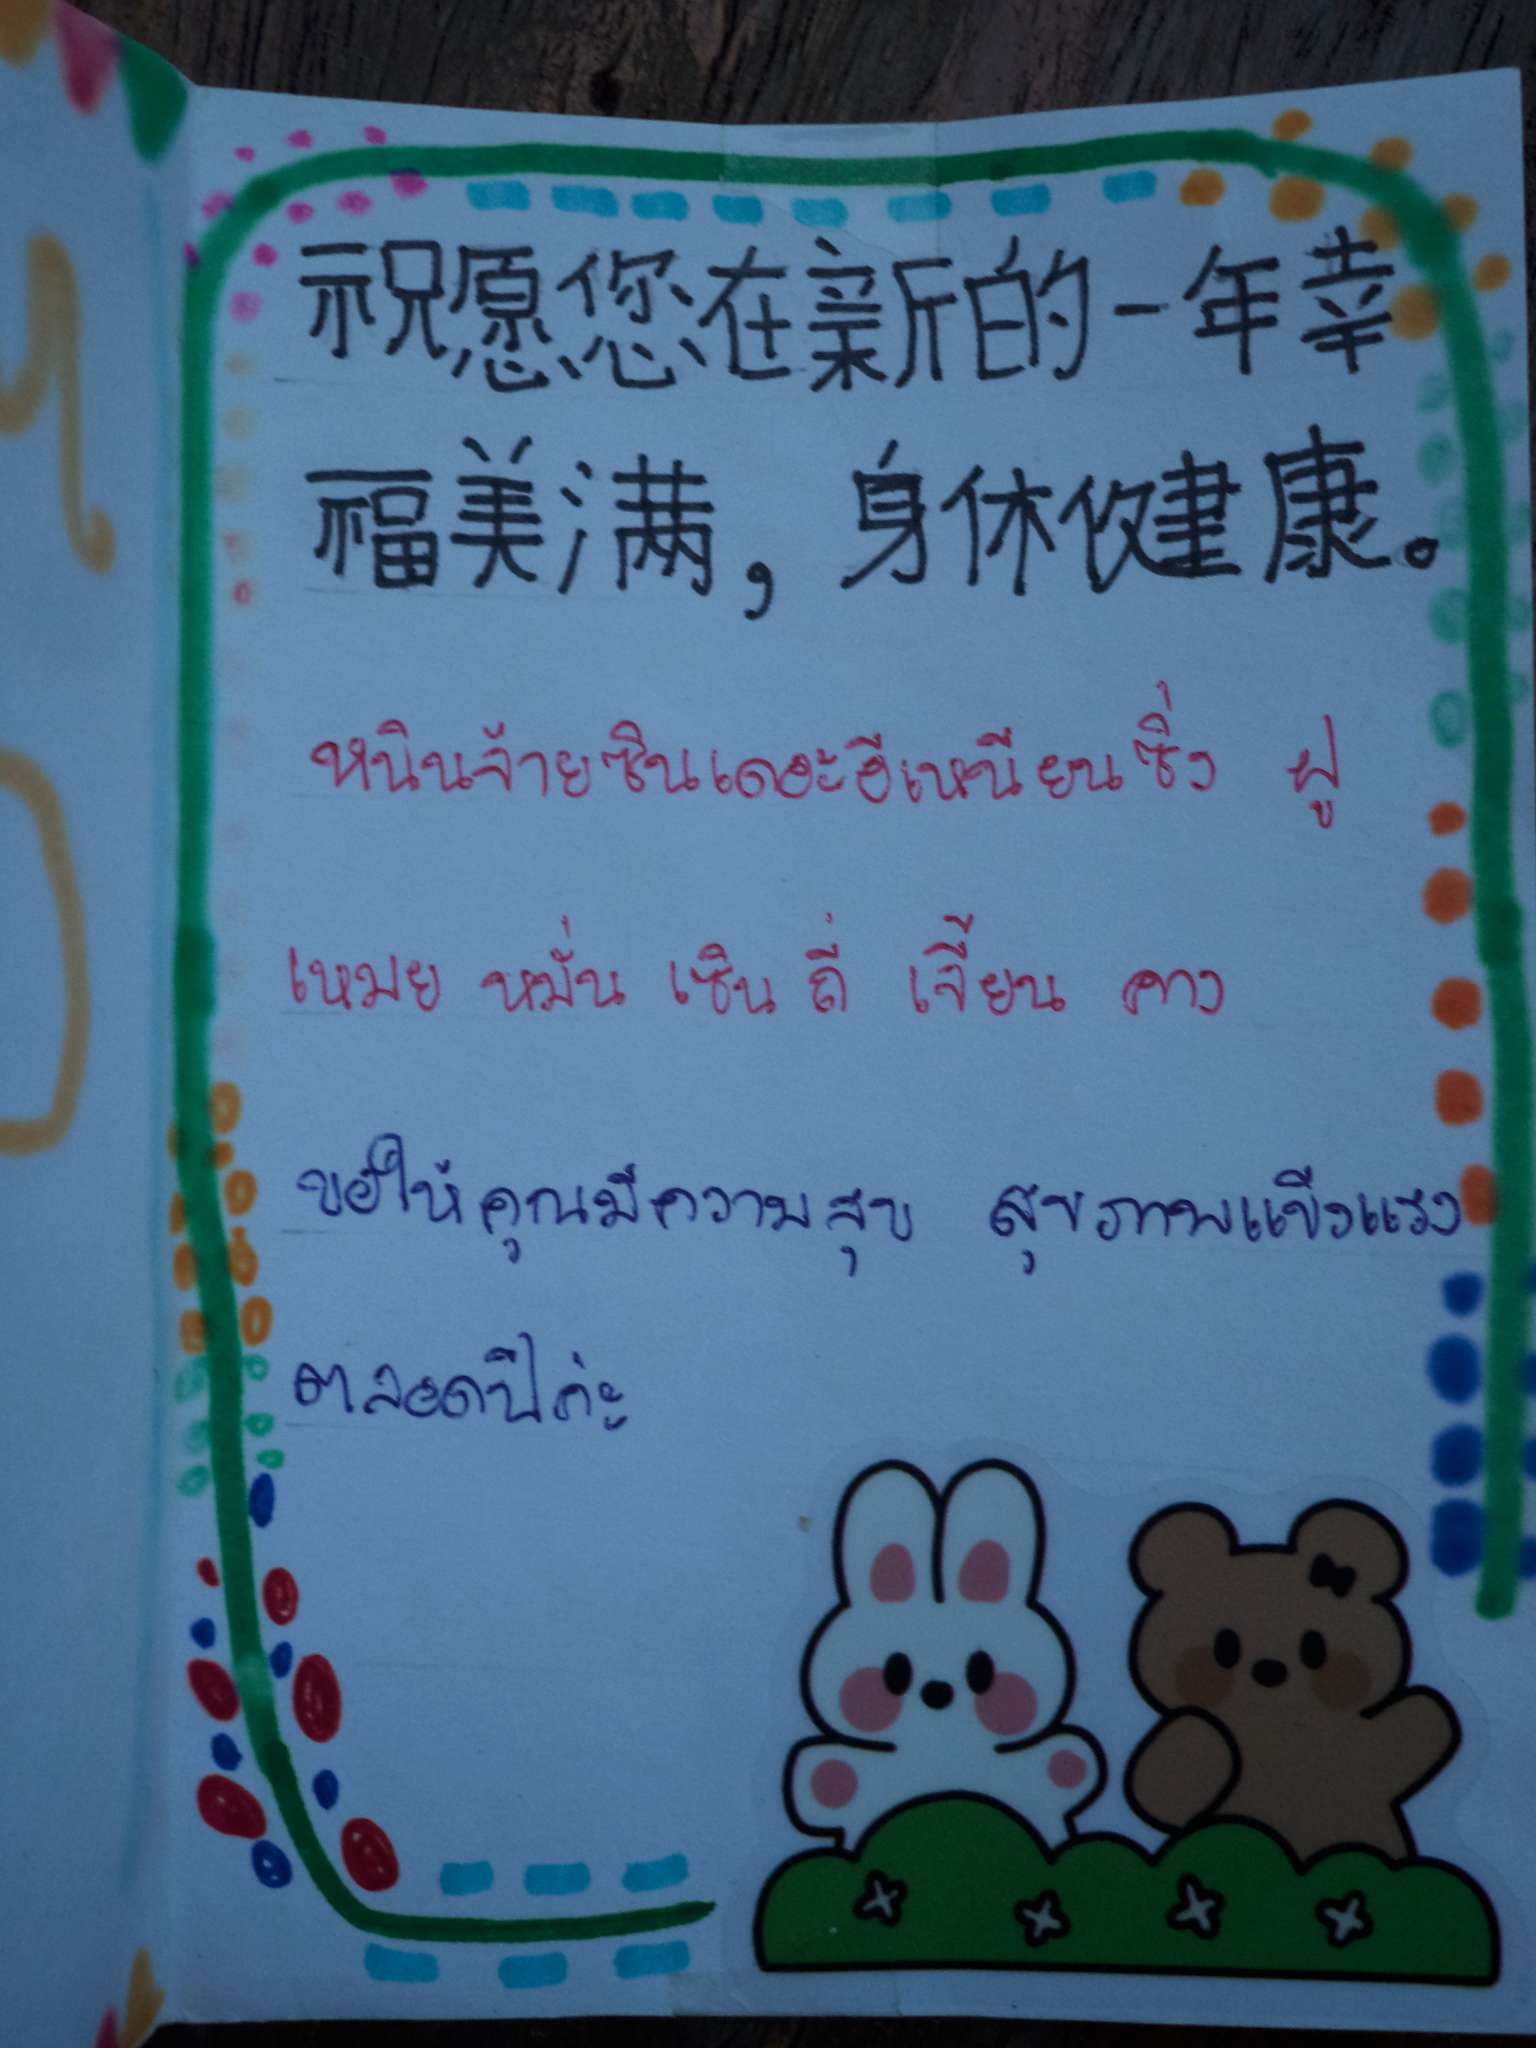 祝愿您在新的一年幸
福美满，身休健康。
หนินจ้ายซินเดอะอีเหนียนซิ่ง ฝู
เหมย หมั่น เซิน ถี่ เจี้ยน คาง
ขอให้คุณมีความสุข สุขภาพแข็งแรง
ตลอดปีค่ะ